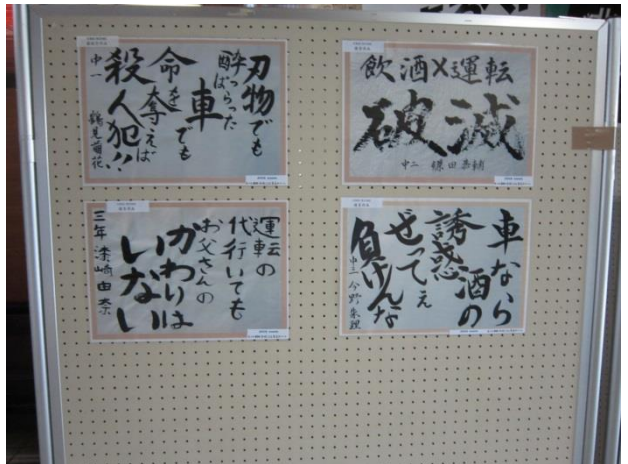 刃物でも
酔っぱらった
車でも
命を奪えば
殺人犯!!
中一
鶴見菊花
飲酒×運転
破滅
中二 磯田恭輔
運転の
代行いても
お父さんの
かわりは
いない
三年 漆崎由奈
車なら
酒の
誘惑
ぜってぇ
負けんな
中三 今野朱理